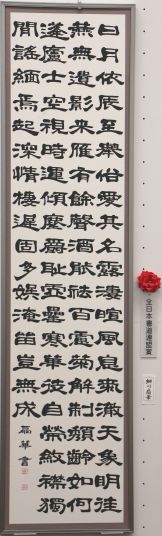 日月依辰至舉俗愛其名露淒暄風息氣澈天象明往
燕無遺影來雁有餘聲酒能祛百慮菊解制頹齡如何
蓬廬士空視時運傾塵爵恥虛罍寒華徒自榮斂襟獨
閒謠緬焉起深情棲遲固多娛淹留豈無成
書
全日本書道連盟賞